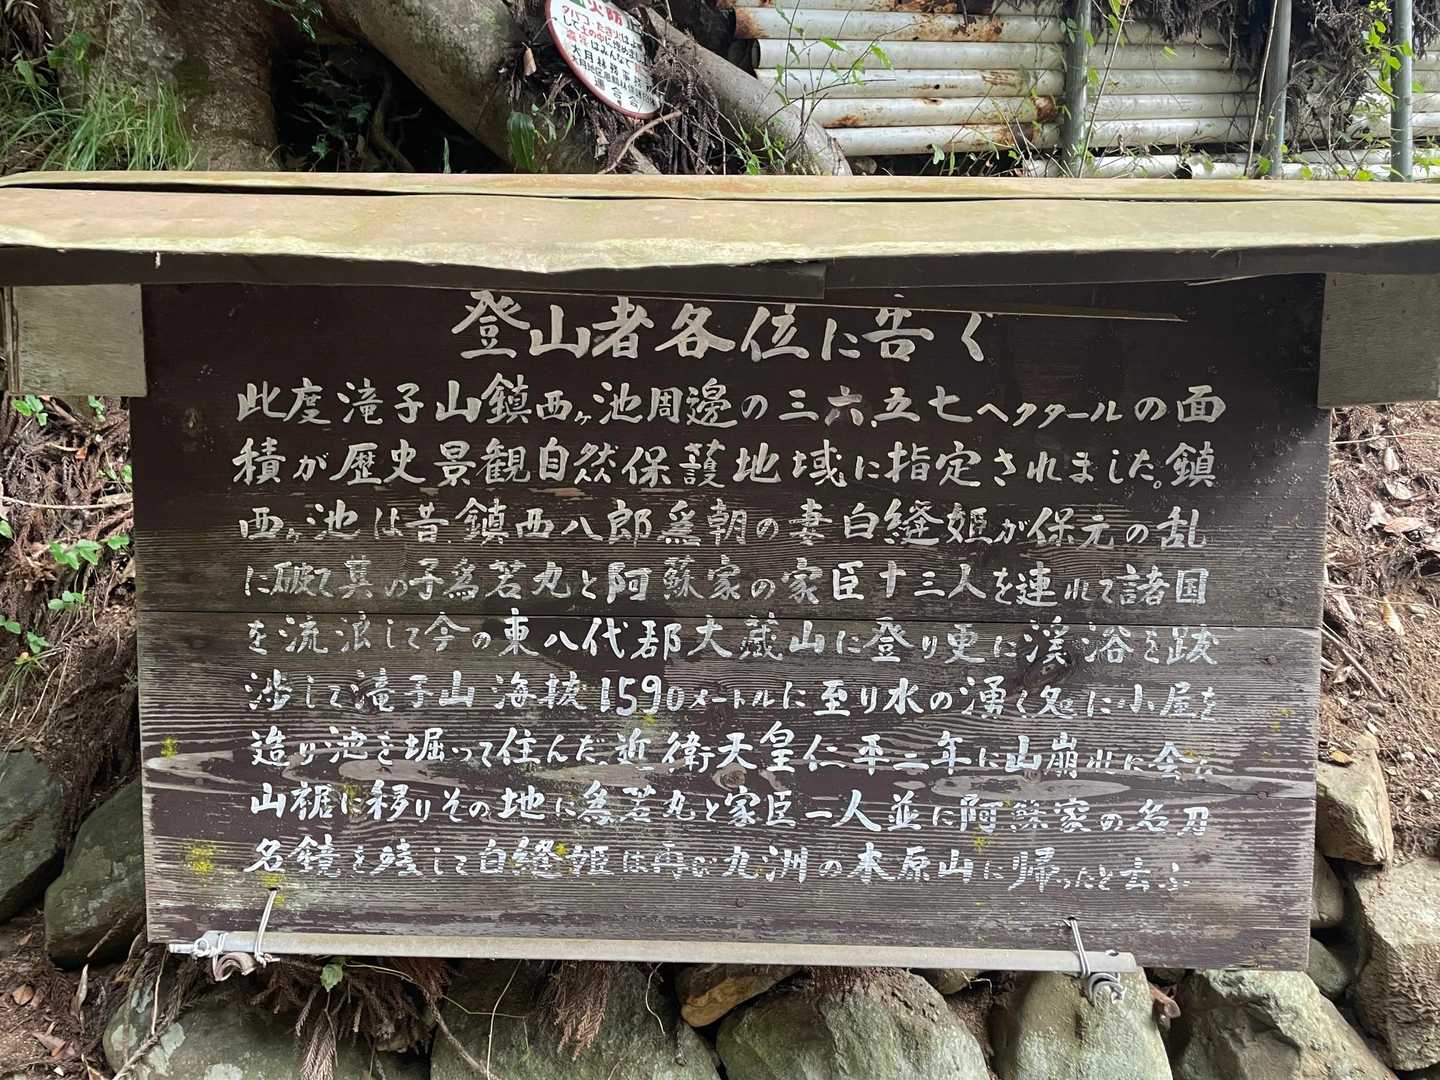 タバコ・たき火はよく
登山者各位に告ぐ
此度滝子山鎮西ヶ池周邊の三六.五七ヘクタールの面
積が歴史景観自然保護地域に指定されました。鎮
西ヶ池は昔.鎮西八郎為朝の妻白縫姫が保元の乱
に破て其の子為若丸と阿蘇家の家臣十三人を連れて諸国
を流浪して今の東八代郡大蔵山に登り更に渓谷を跋
渉して滝子山海抜1590メートルに至り水の湧く処に小屋を
造り池を堀って住んだ.近衛天皇仁平二年に山崩れに会い
山裾に移りその地に為若丸と家臣一人並に阿蘇家の名刀
名鏡を残して白縫姫は再び九洲の木原山に帰ったと云ふ